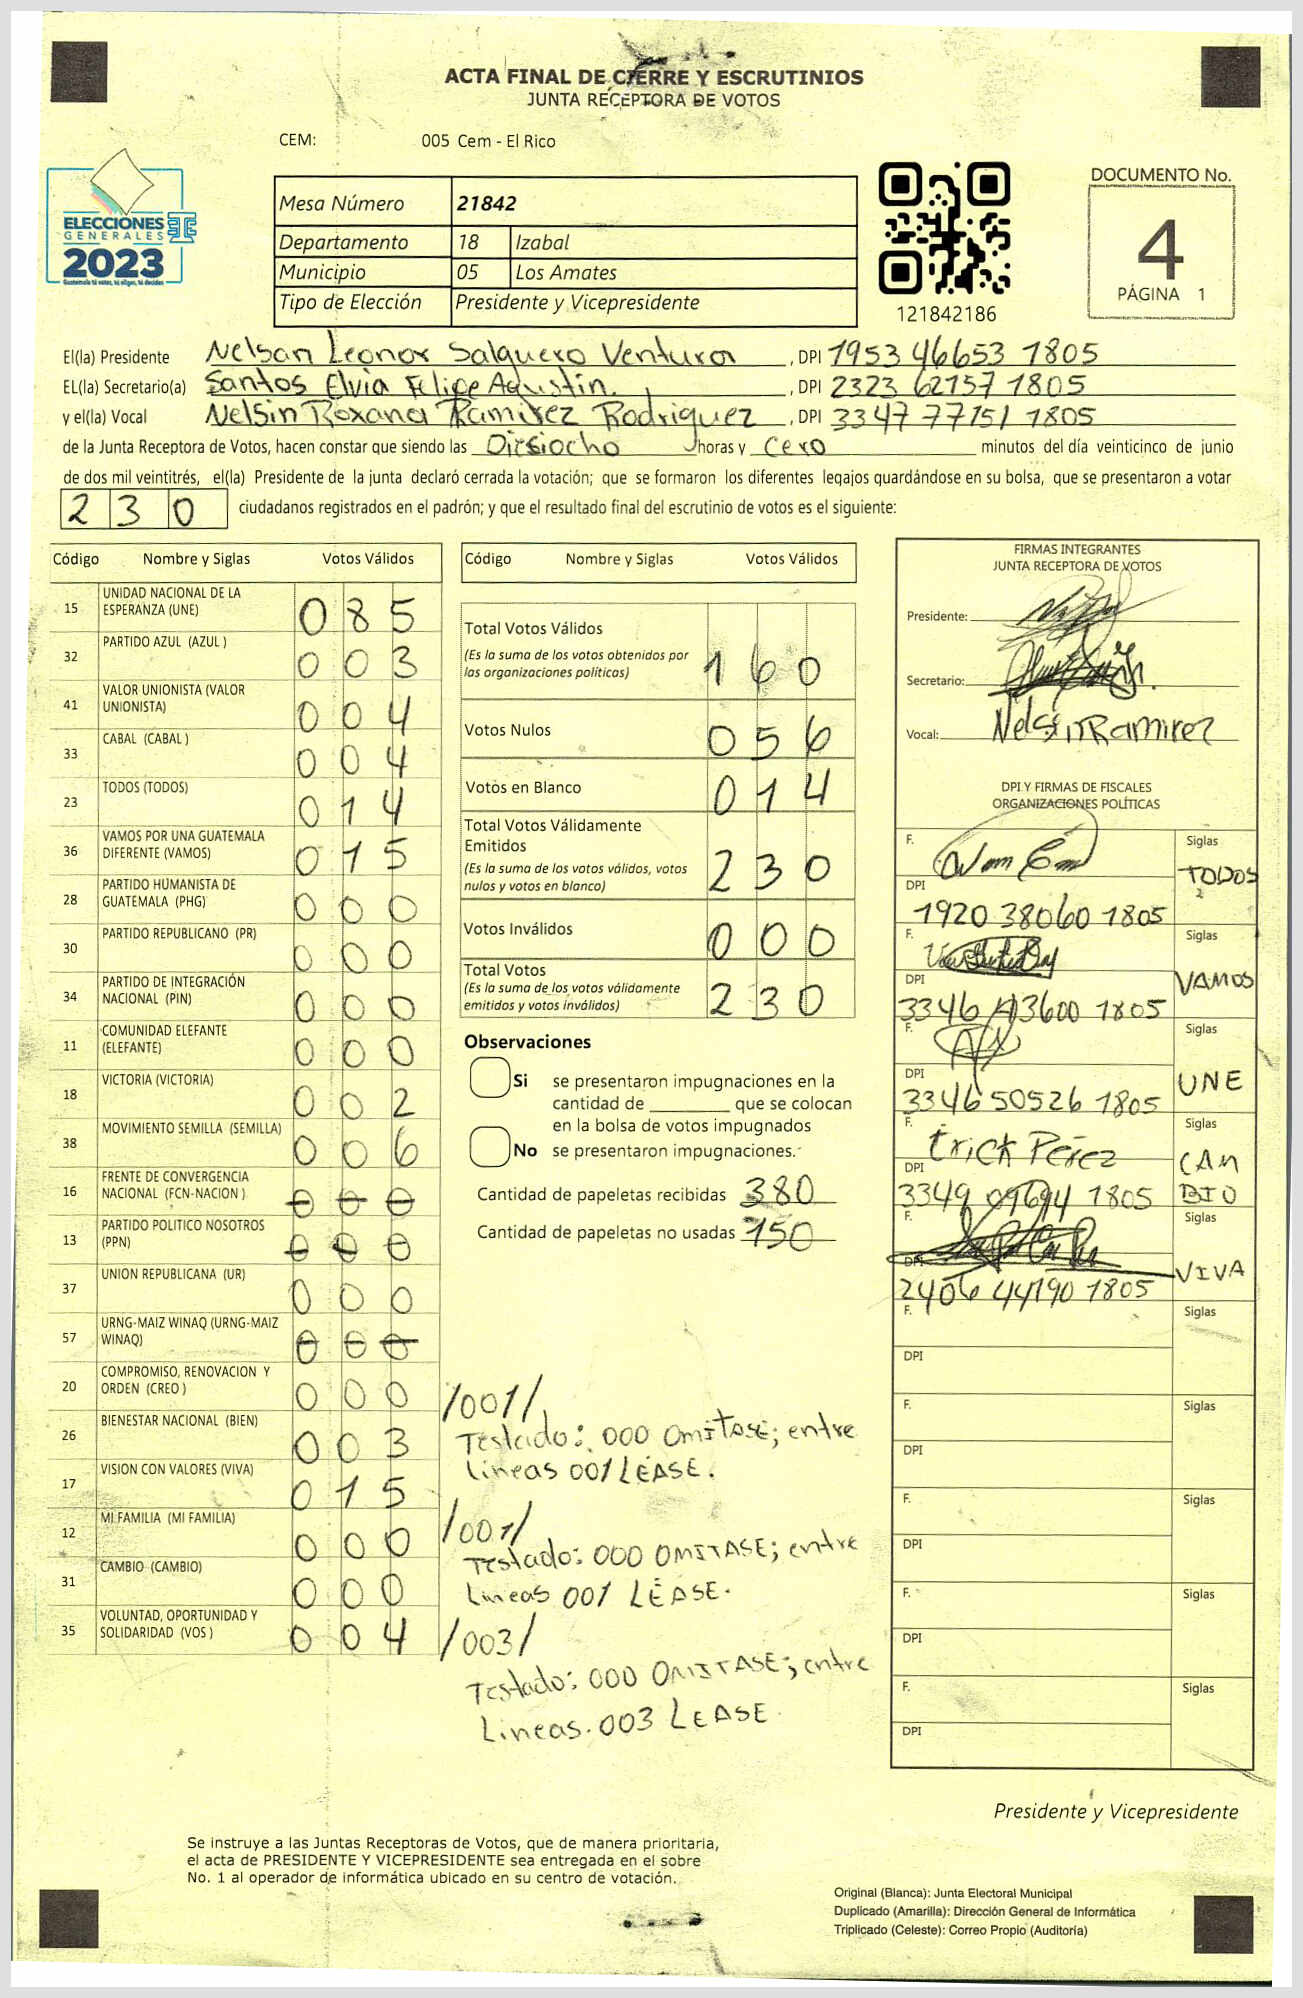 ACTA FINAL DE CIERRE Y ESCRUTINIOS
JUNTA RECEPTORA DE VOTOS
CEM: 005 Cem - El Rico
ELECCIONES
GENERALES
2023
Guatemala tú votas, tú eliges, tú decides
Mesa Número 21842
Departamento 18 Izabal
Municipio 05 Los Amates
Tipo de Elección Presidente y Vicepresidente
121842186
DOCUMENTO No.
4
PÁGINA 1
El(la) Presidente Nelson Leonor Salguero Ventura, DPI 1953 46653 1805
EL(la) Secretario(a) Santos Elvia Felipe Agustin., DPI 2323 62157 1805
y el(la) Vocal Nelsin Roxana Ramirez Rodriguez, DPI 3347 77151 1805
de la Junta Receptora de Votos, hacen constar que siendo las Diesiocho horas y cero minutos del día veinticinco de junio
de dos mil veintitrés, el(la) Presidente de la junta declaró cerrada la votación; que se formaron los diferentes legajos guardándose en su bolsa, que se presentaron a votar
230 ciudadanos registrados en el padrón; y que el resultado final del escrutinio de votos es el siguiente:
Código Nombre y Siglas Votos Válidos
15 UNIDAD NACIONAL DE LA ESPERANZA (UNE) 085
32 PARTIDO AZUL (AZUL ) 003
41 VALOR UNIONISTA (VALOR UNIONISTA) 004
33 CABAL (CABAL ) 004
23 TODOS (TODOS) 014
36 VAMOS POR UNA GUATEMALA DIFERENTE (VAMOS) 015
28 PARTIDO HUMANISTA DE GUATEMALA (PHG) 000
30 PARTIDO REPUBLICANO (PR) 000
34 PARTIDO DE INTEGRACIÓN NACIONAL (PIN) 000
11 COMUNIDAD ELEFANTE (ELEFANTE) 000
18 VICTORIA (VICTORIA) 002
38 MOVIMIENTO SEMILLA (SEMILLA) 006
16 FRENTE DE CONVERGENCIA NACIONAL (FCN-NACION ) 000
13 PARTIDO POLITICO NOSOTROS (PPN) 000
37 UNION REPUBLICANA (UR) 000
57 URNG-MAIZ WINAQ (URNG-MAIZ WINAQ) 000
20 COMPROMISO, RENOVACION Y ORDEN (CREO ) 000
26 BIENESTAR NACIONAL (BIEN) 003
17 VISION CON VALORES (VIVA) 015
12 MI FAMILIA (MI FAMILIA) 000
31 CAMBIO (CAMBIO) 000
35 VOLUNTAD, OPORTUNIDAD Y SOLIDARIDAD (VOS ) 004
Código Nombre y Siglas Votos Válidos
Total Votos Válidos 160
(Es la suma de los votos obtenidos por
las organizaciones politicas)
Votos Nulos 056
Votos en Blanco 014
Total Votos Válidamente
Emitidos 230
(Es la suma de los votos válidos, votos
nulos y votos en blanco)
Votos Inválidos 000
Total Votos 230
(Es la suma de los votos válidamente
emitidos y votos inválidos)
Observaciones
Si se presentaron impugnaciones en la
cantidad de ________ que se colocan
en la bolsa de votos impugnados
No se presentaron impugnaciones.
Cantidad de papeletas recibidas 380
Cantidad de papeletas no usadas 150
/001/
Testado: 000 OMITASE; entre
Lineas 001 LÉASE.
/001/
Testado: 000 OMITASE; entre
Lineas 001 LÉASE.
/003/
Testado: 000 OMITASE; entre
Lineas. 003 LEASE.
FIRMAS INTEGRANTES
JUNTA RECEPTORA DE VOTOS
Presidente:
Secretario:
Vocal: Nelsin Ramirez
DPI Y FIRMAS DE FISCALES
ORGANIZACIONES POLÍTICAS
F. Siglas
TODOS
DPI 1920 38060 1805
F. Siglas
VAMOS
DPI 3346 13600 1805
F. Siglas
UNE
DPI 3346 50526 1805
F. Erick Pérez Siglas
CAMBIO
DPI 3349 09694 1805
F. Siglas
VIVA
DPI 2406 44190 1805
F. Siglas
DPI
F. Siglas
DPI
F. Siglas
DPI
F. Siglas
DPI
F. Siglas
DPI
Presidente y Vicepresidente
Se instruye a las Juntas Receptoras de Votos, que de manera prioritaria,
el acta de PRESIDENTE Y VICEPRESIDENTE sea entregada en el sobre
No. 1 al operador de informática ubicado en su centro de votación.
Original (Blanca): Junta Electoral Municipal
Duplicado (Amarilla): Dirección General de Informática
Triplicado (Celeste): Correo Propio (Auditoría)